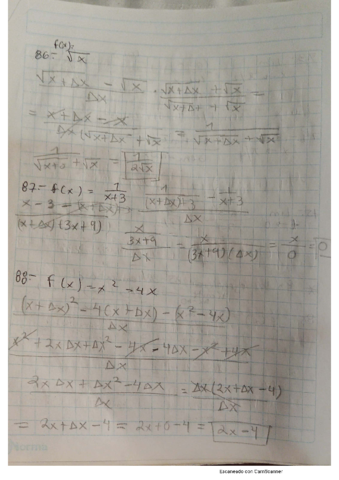 86=- f(x)= √x
(√x+Δx - √x)/Δx · (√x+Δx + √x)/(√x+Δx + √x) =
= (x+Δx - x)/(Δx(√x+Δx + √x)) = 1/(√x+Δx + √x)
1/(√x+x + √x) = 1/(2√x)
87=- f(x) = 1/(x+3)
x - 3 =
(x+Δx)(3x+9)
x/(3x+9)/Δx = x/((3x+9)(Δx)) = x/0 = 0
88=- f(x) = x² - 4x
((x+Δx)² - 4(x+Δx) - (x² - 4x))/Δx
(x² + 2xΔx + Δx² - 4x - 4Δx - x² + 4x)/Δx
(2xΔx + Δx² - 4Δx)/Δx = Δx(2x+Δx-4)/Δx
= 2x+Δx-4 = 2x+0-4 = 2x-4
Norma
Escaneado con CamScanner